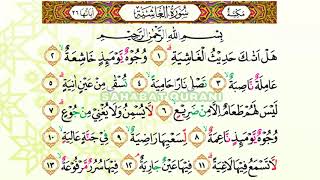 مكية سورة الغاشية آياتها ٢٦
بِسْمِ اللَّهِ الرَّحْمَٰنِ الرَّحِيمِ
هَلْ أَتَىٰكَ حَدِيثُ الْغَاشِيَةِ ١ وُجُوهٌ يَوْمَئِذٍ خَاشِعَةٌ ٢
عَامِلَةٌ نَّاصِبَةٌ ٣ تَصْلَىٰ نَارًا حَامِيَةً ٤ تُسْقَىٰ مِنْ عَيْنٍ آنِيَةٍ ٥
لَّيْسَ لَهُمْ طَعَامٌ إِلَّا مِن ضَرِيعٍ ٦ لَّا يُسْمِنُ وَلَا يُغْنِي مِن جُوعٍ
٧ وُجُوهٌ يَوْمَئِذٍ نَّاعِمَةٌ ٨ لِّسَعْيِهَا رَاضِيَةٌ ٩ فِي جَنَّةٍ عَالِيَةٍ ١٠
لَّا تَسْمَعُ فِيهَا لَاغِيَةً ١١ فِيهَا عَيْنٌ جَارِيَةٌ ١٢ فِيهَا سُرُرٌ مَّرْفُوعَةٌ ١٣